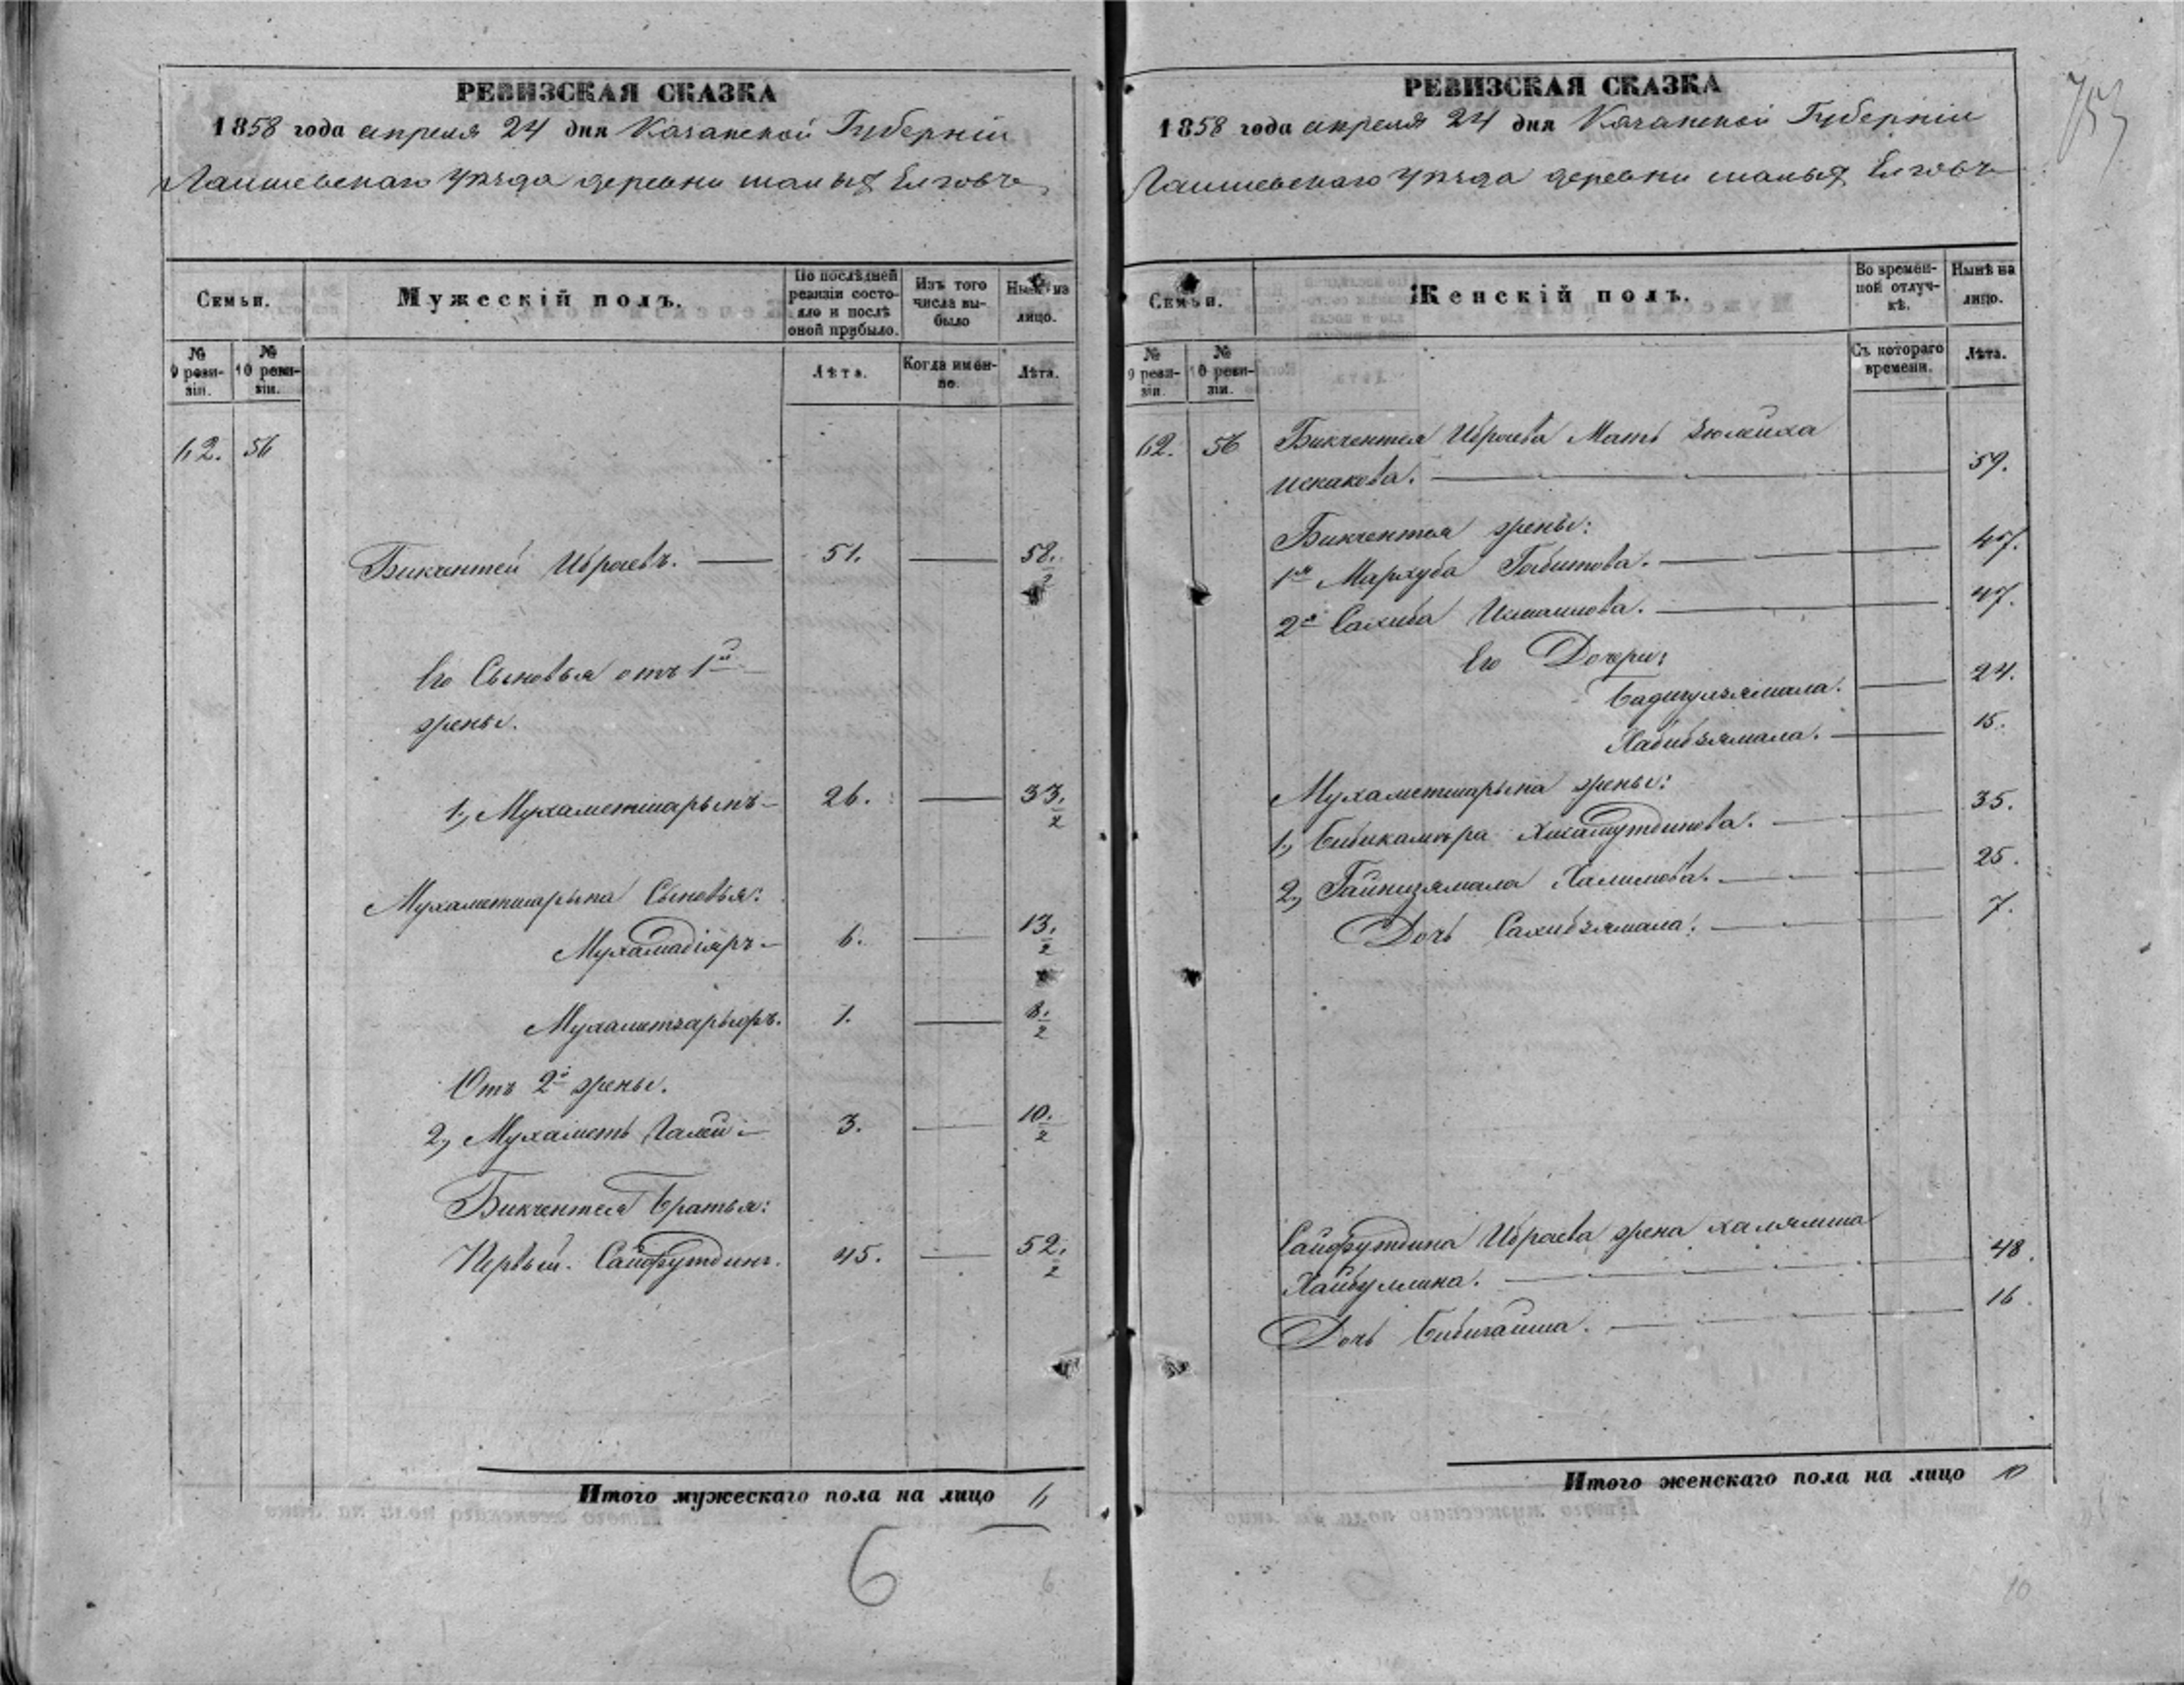 РЕВИЗСКАЯ СКАЗКА
1858 года апреля 24 дня Казанской Губерніи
Лаишевскаго уѣзда деревни малыя Елговъ
Семьи.
Мужескій полъ.
По послѣдней ревизіи состояло и послѣ оной прибыло.
Изъ того числа выбыло
Нынѣ на лицо.
№ 9 ревизіи.
№ 10 ревизіи.
Лѣта.
Когда именно.
Лѣта.
62. 56
Бикчентей Ибраевъ. — 51. — 58.
2
Его Сыновья отъ 1й
жены.
1, Мухаметшарыпъ — 26. — 33.
2
Мухаметшарыпа Сыновья:
Мухамадіяръ — 6. — 13.
2
Мухаметзарыоръ. 1. — 8.
2
Отъ 2й жены.
2, Мухаметъ Галей — 3. — 10.
2
Бикчентея Братья:
Первый. Сайфутдинъ. 45. — 52.
2
Итого мужескаго пола на лицо 6
6
6
РЕВИЗСКАЯ СКАЗКА
753
1858 года апреля 24 дня Казанской Губерніи
Лаишевскаго уѣзда деревни малыя Елговъ
Семьи.
Женскій полъ.
Во временной отлучкѣ.
Нынѣ на лицо.
№ 9 ревизіи.
№ 10 ревизіи.
Съ котораго времени.
Лѣта.
62. 56 Бикчентея Ибраева Мать Зюлейха
Искакова. — 59.
Бикчентея жены:
1я Мархуба Габитова. — 47.
2я Сахиба Исмаилова. — 47.
Его Дочери:
Бадигулзямала. — 24.
Хабибзямала. — 15.
Мухаметшарыпа жены:
1, Бибикамъра Хисамутдинова. — 35.
2, Гайнизямала Халимова. — 25.
Дочь Сахибзямала. — 7.
Сайфутдина Ибраева жена халямша
Хайбуллина. — 48.
Дочь Бибигайша. — 16.
Итого женскаго пола на лицо 10
10